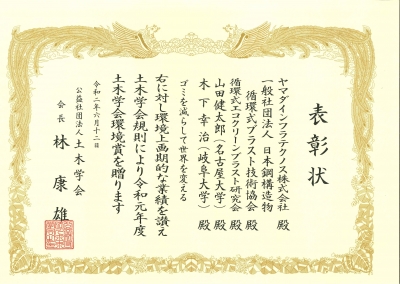 表彰状
ヤマダインフラテクノス株式会社 殿
一般社団法人 日本鋼構造物
循環式ブラスト技術協会 殿
循環式エコクリーンブラスト研究会 殿
山田健太郎(名古屋大学) 殿
木下幸治(岐阜大学) 殿
ゴミを減らして世界を変える
右に対し環境上画期的な業績を讃え
土木学会規則により令和元年度
土木学会環境賞を贈ります
令和二年六月十二日
公益社団法人 土木学会
会長 林康雄